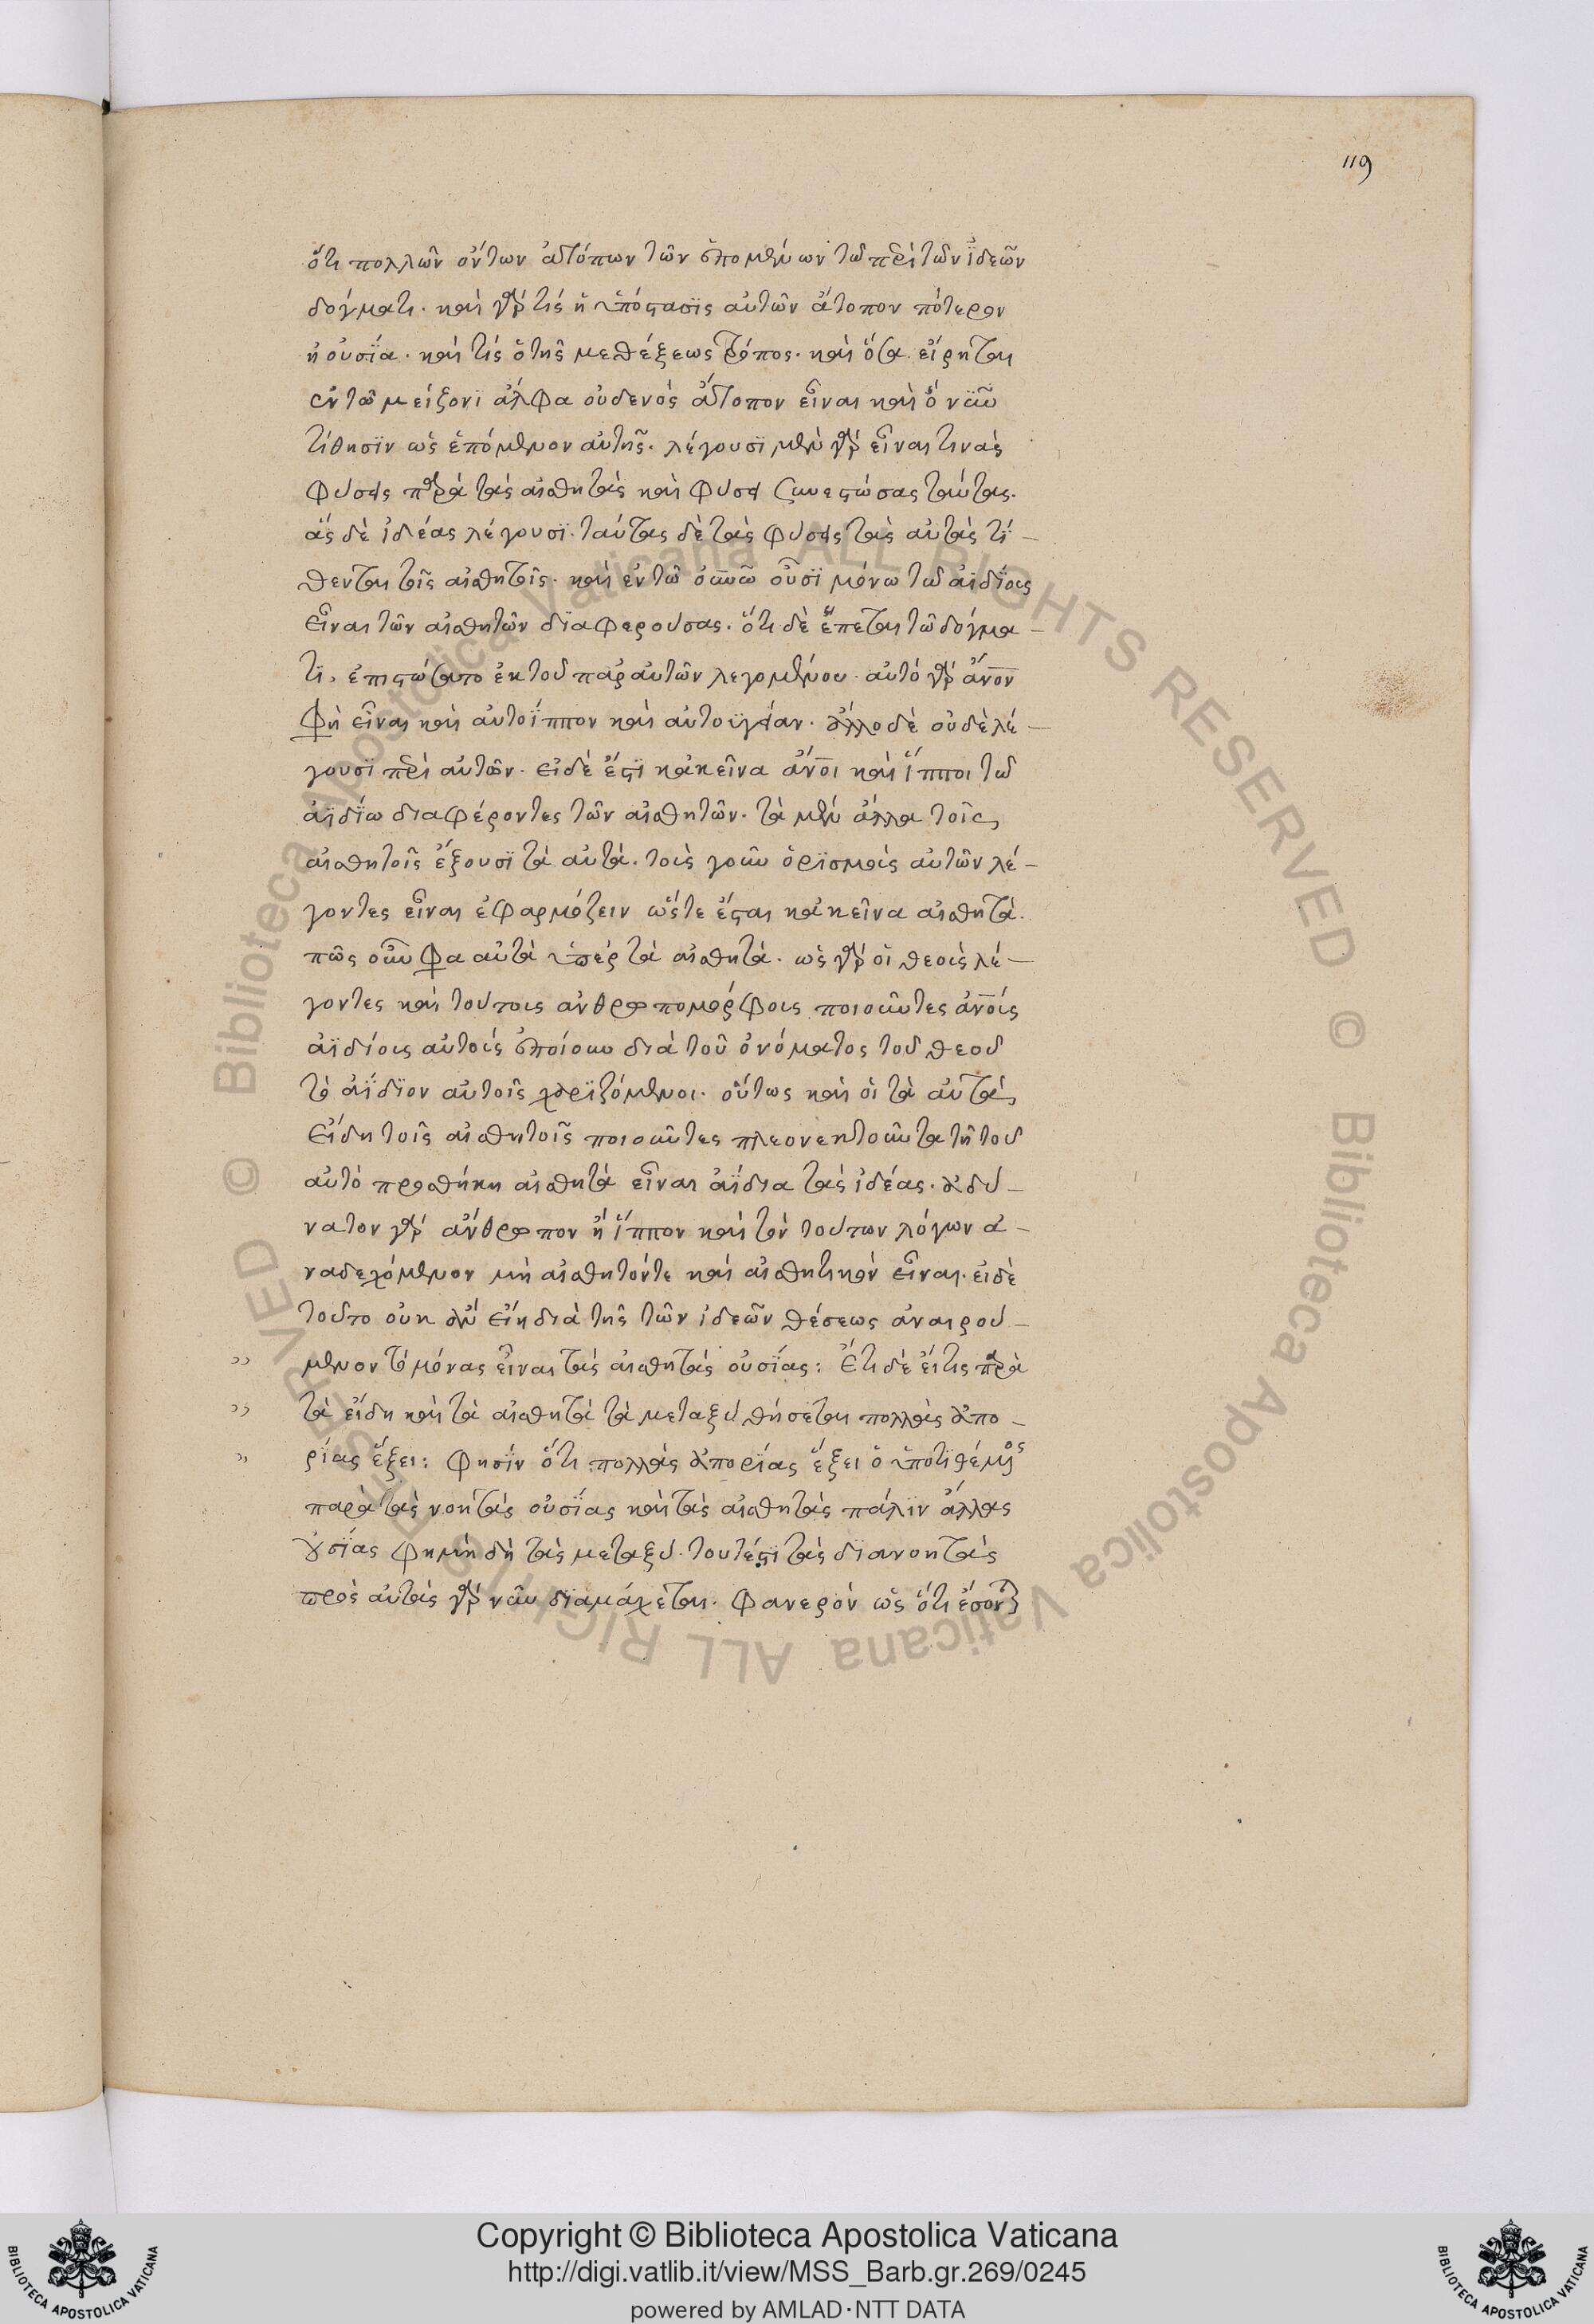 119
ὅτι πολλῶν ὄντων ἀτόπων τῶν ἑπομένων τῶ περὶ τῶν ἰδεῶν
δόγματι. καὶ γὰρ τίς ἡ ὑπόστασϊς αὐτῶν ἄτοπον πότερον
ἡ οὐσΐα. καὶ τίς ὁ τῆς μεθέξεως τρόπος. καὶ ὅσα εἴρηται
ἐν τῶ μείζονϊ ἄλφα οὐδενὸς ἄτοπον εἶναι καὶ ὃ νῦν
τίθησϊν ὡς ἑπόμενον αὐτῆς. λέγουσϊ μὲν γὰρ εἶναι τινὰς
φύσεις παρὰ τὰς αἰσθητὰς καὶ φύσει συνεστώσας ταύτας.
ἃς δὲ ἰδέας λέγουσϊ. ταύτας δὲ τὰς φύσεις τὰς αὐτὰς τί-
θενται τοῖς αἰσθητοῖς. καὶ ἐν τῶ οὖσϊ μόνω τῶ ἀϊδΐοις
εἶναι τῶν αἰσθητῶν δϊαφερούσας. ὅτι δὲ ἕπεται τῶ δόγμα-
τι, ἐπιστώσατο ἐκ τοῦ παρ αὐτῶν λεγομένου. αὐτὸ γὰρ ἄνον
φὴ εἶναι καὶ αὐτοΐππον καὶ αὐτοϋγείαν. ἄλλο δὲ οὐδὲ λέ-
γουσϊ περὶ αὐτῶν. εἰ δὲ ἔστϊ κἀκεῖνα ἄνοι καὶ ἵπποι τῶ
ἀϊδΐω διαφέροντες τῶν αἰσθητῶν. τὰ μὲν ἄλλα τοῖς
αἰσθητοῖς ἕξουσϊ τὰ αὐτά. τοὺς γοῦν ὁρϊσμοὺς αὐτῶν λέ-
γοντες εἶναι ἐφαρμόζειν ὥστε ἔσται κἀκεῖνα αἰσθητὰ.
πῶς οὖν φα αὐτὰ ὑπὲρ τὰ αἰσθητὰ. ὡς γὰρ οἱ θεοὺς λέ-
γοντες καὶ τούτοις ἀνθρωπομόρφοις ποιοῦντες ἀνοὶς
ἀϊδίοις αὐτοὶς ἐποίουν διὰ τοῦ ὀνόματος τοῦ θεοῦ
τὸ ἀΐδϊον αὐτοῖς χαρϊζόμενοι. οὕτως καὶ οἱ τὰ αὐτὰ
εἴδη τοῖς αἰσθητοῖς ποιοῦντες πλεονεκτοῦντα τῆ τοῦ
αὐτὸ προσθήκη αἰσθητὰ εἶναι ἀΐδια τὰς ἰδέας. ἀδύ-
νατον γὰρ ἄνθρωπον ἢ ἵππον καὶ τὸν τούτων λόγων ἀ-
ναδεχόμενον μὴ αἰσθητόν τε καὶ αἰσθητικὸν εἶναι. εἰ δὲ
τοῦτο οὐκ ἂν εἴη διὰ τῆς τῶν ἰδεῶν θέσεως ἀναιρού-
μενον τὸ μόνας εἶναι τὰς αἰσθητὰς οὐσΐας: Ἔτι δὲ εἴ τις παρὰ
τὰ εἴδη καὶ τὰ αἰσθητὰ τὰ μεταξὺ θήσεται πολλὰς ἀπο-
ρίας ἕξει: φησΐν ὅτι πολλὰς ἀπορΐας ἕξει ὁ ὑποτϊθέμενος
παρὰ τὰς νοητὰς οὐσΐας καὶ τὰς αἰσθητὰς πάλϊν ἄλλας
οὐσΐας φημὶ δὴ τὰς μεταξύ. τουτέστϊ τὰς δϊανοητὰς
πρὸς αὐτὰς γὰρ νῦν δϊαμάχεται. φανερὸν ὡς ὅτι ἔσονται
Copyright © Biblioteca Apostolica Vaticana
http://digi.vatlib.it/view/MSS_Barb.gr.269/0245
powered by AMLAD·NTT DATA